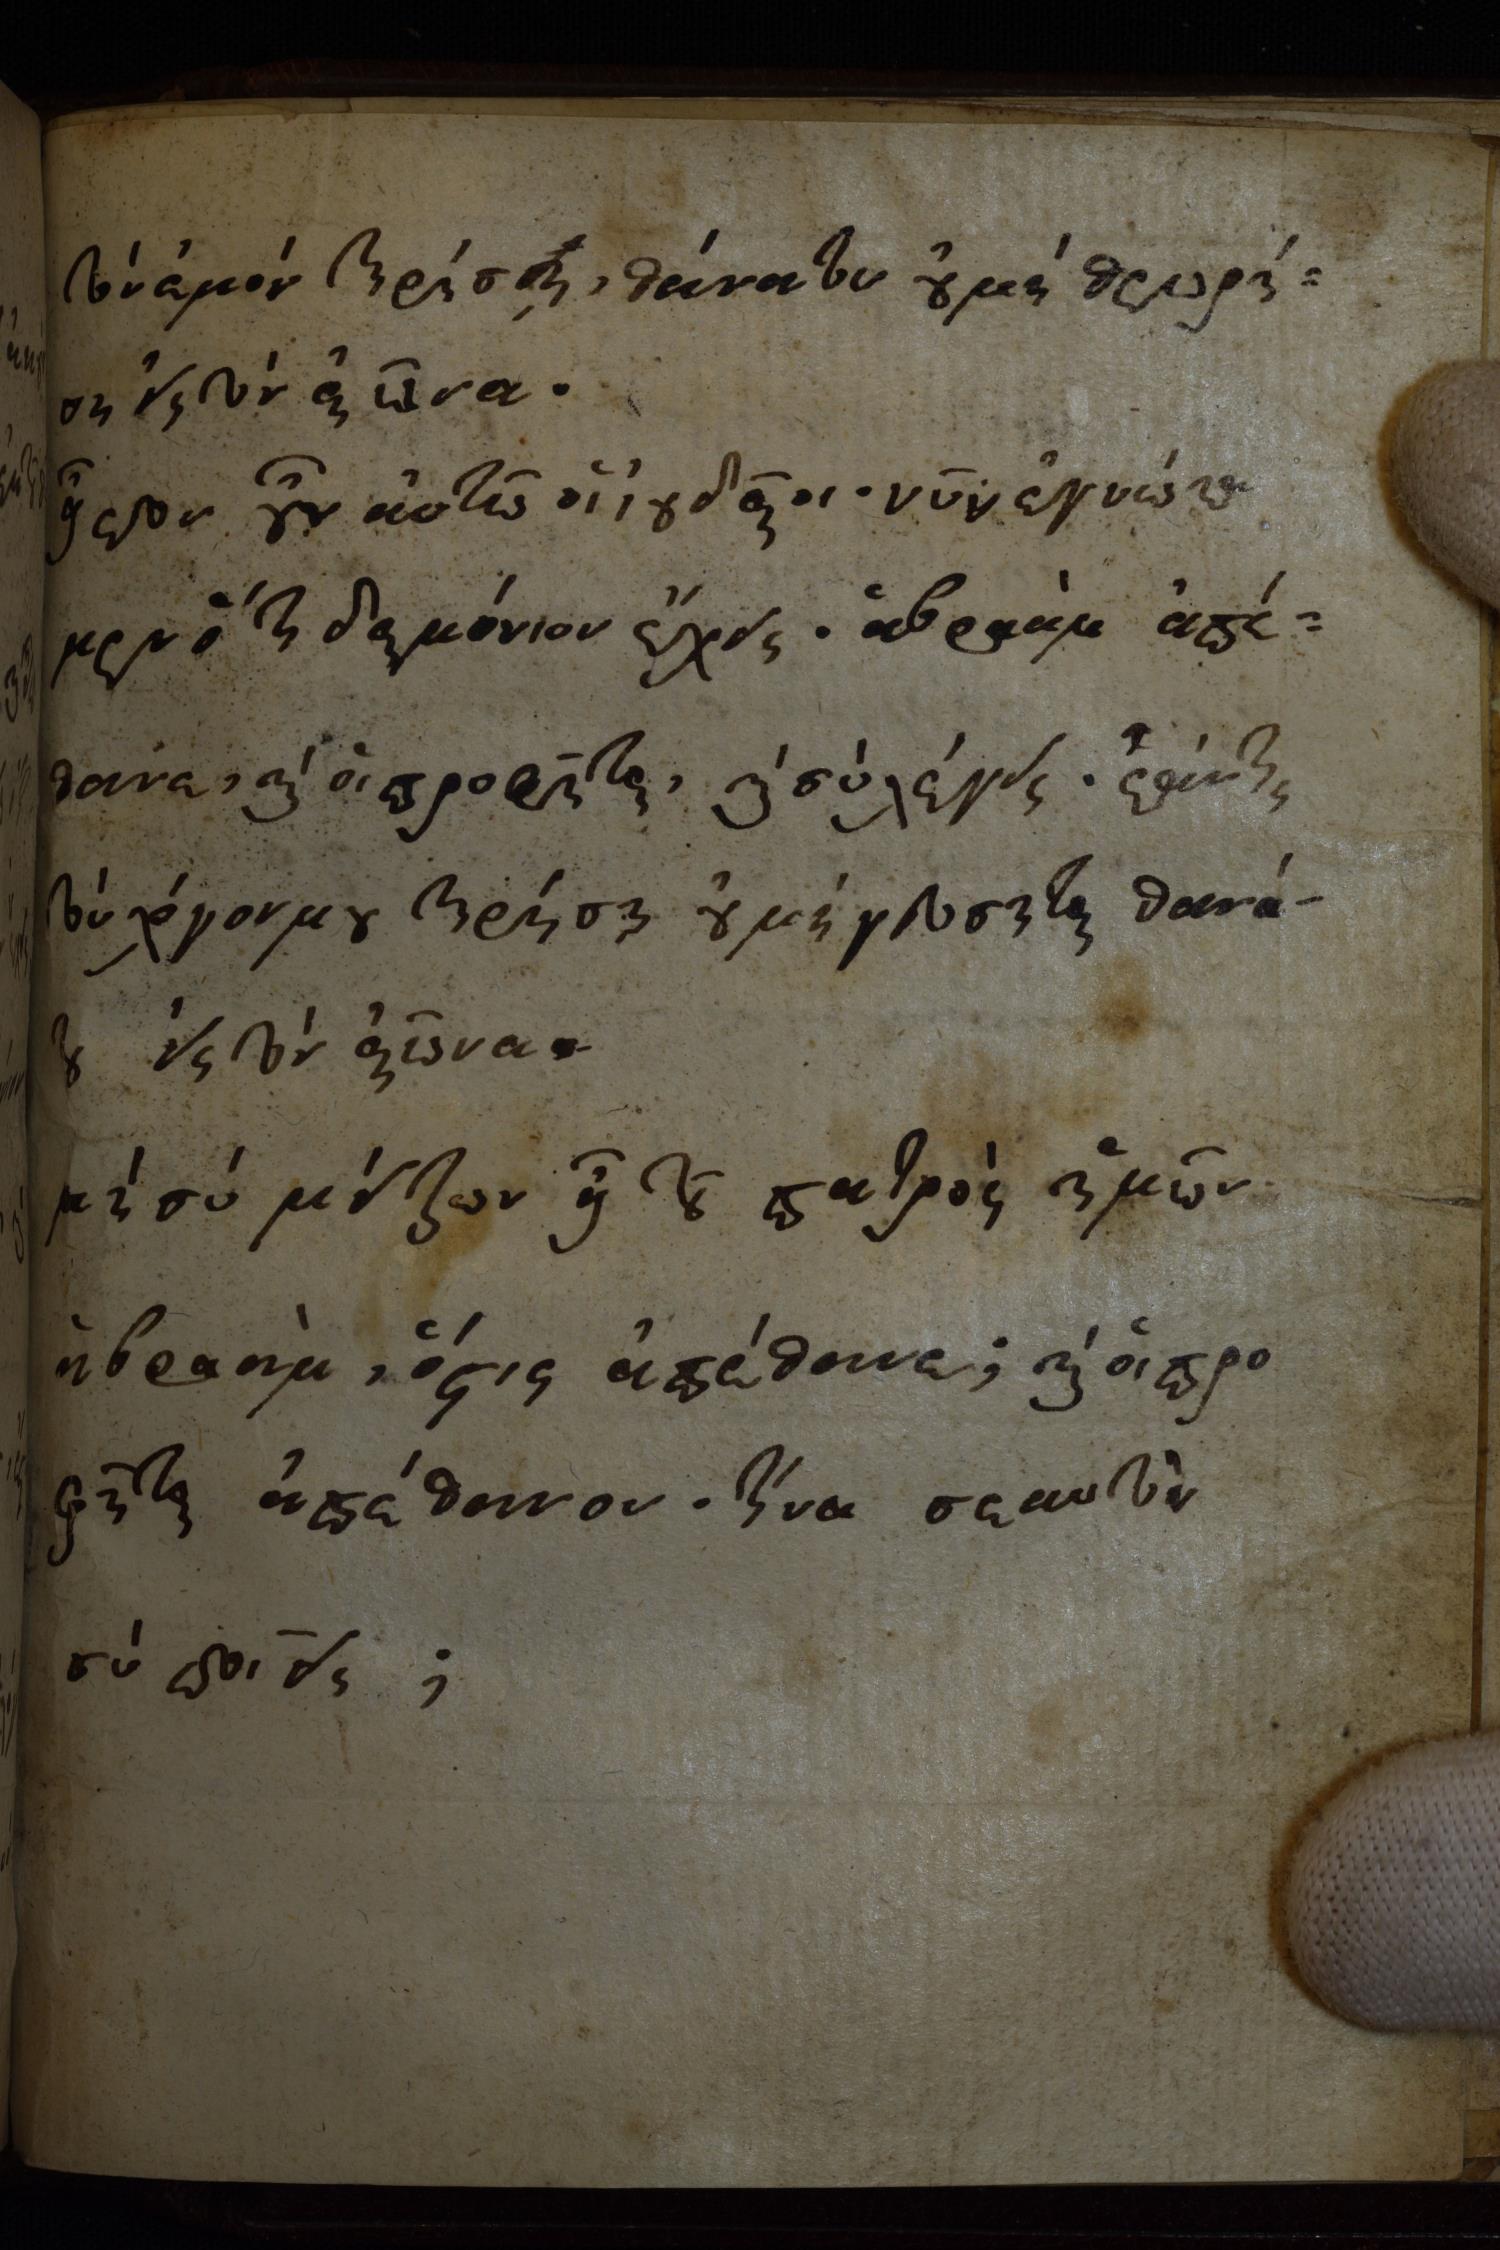 τὸν ἐμὸν τηρήσῃ, θάνατον οὐ μὴ θεωρή=
ση εἰς τὸν αἰῶνα.
εἶπον οὖν αὐτῶ οἱ ἰουδαῖοι. νῦν ἐγνώκα
μεν ὅτι δαιμόνιον ἔχεις. ἀβραὰμ ἀπέ=
θανε, καὶ οἱ προφῆται, καὶ σὺ λέγεις. ἐάν τις
τὸν λόγον μου τηρήση οὐ μὴ γεύσηται θανά-
του εἰς τὸν αἰῶνα.
μὴ σὺ μείζων εἶ τοῦ πατρὸς ἡμῶν
ἀβραὰμ, ὅστις ἀπέθανε; καὶ οἱ προ
φῆται ἀπέθανον. τίνα σεαυτὸν
σὺ ποιεῖς ;